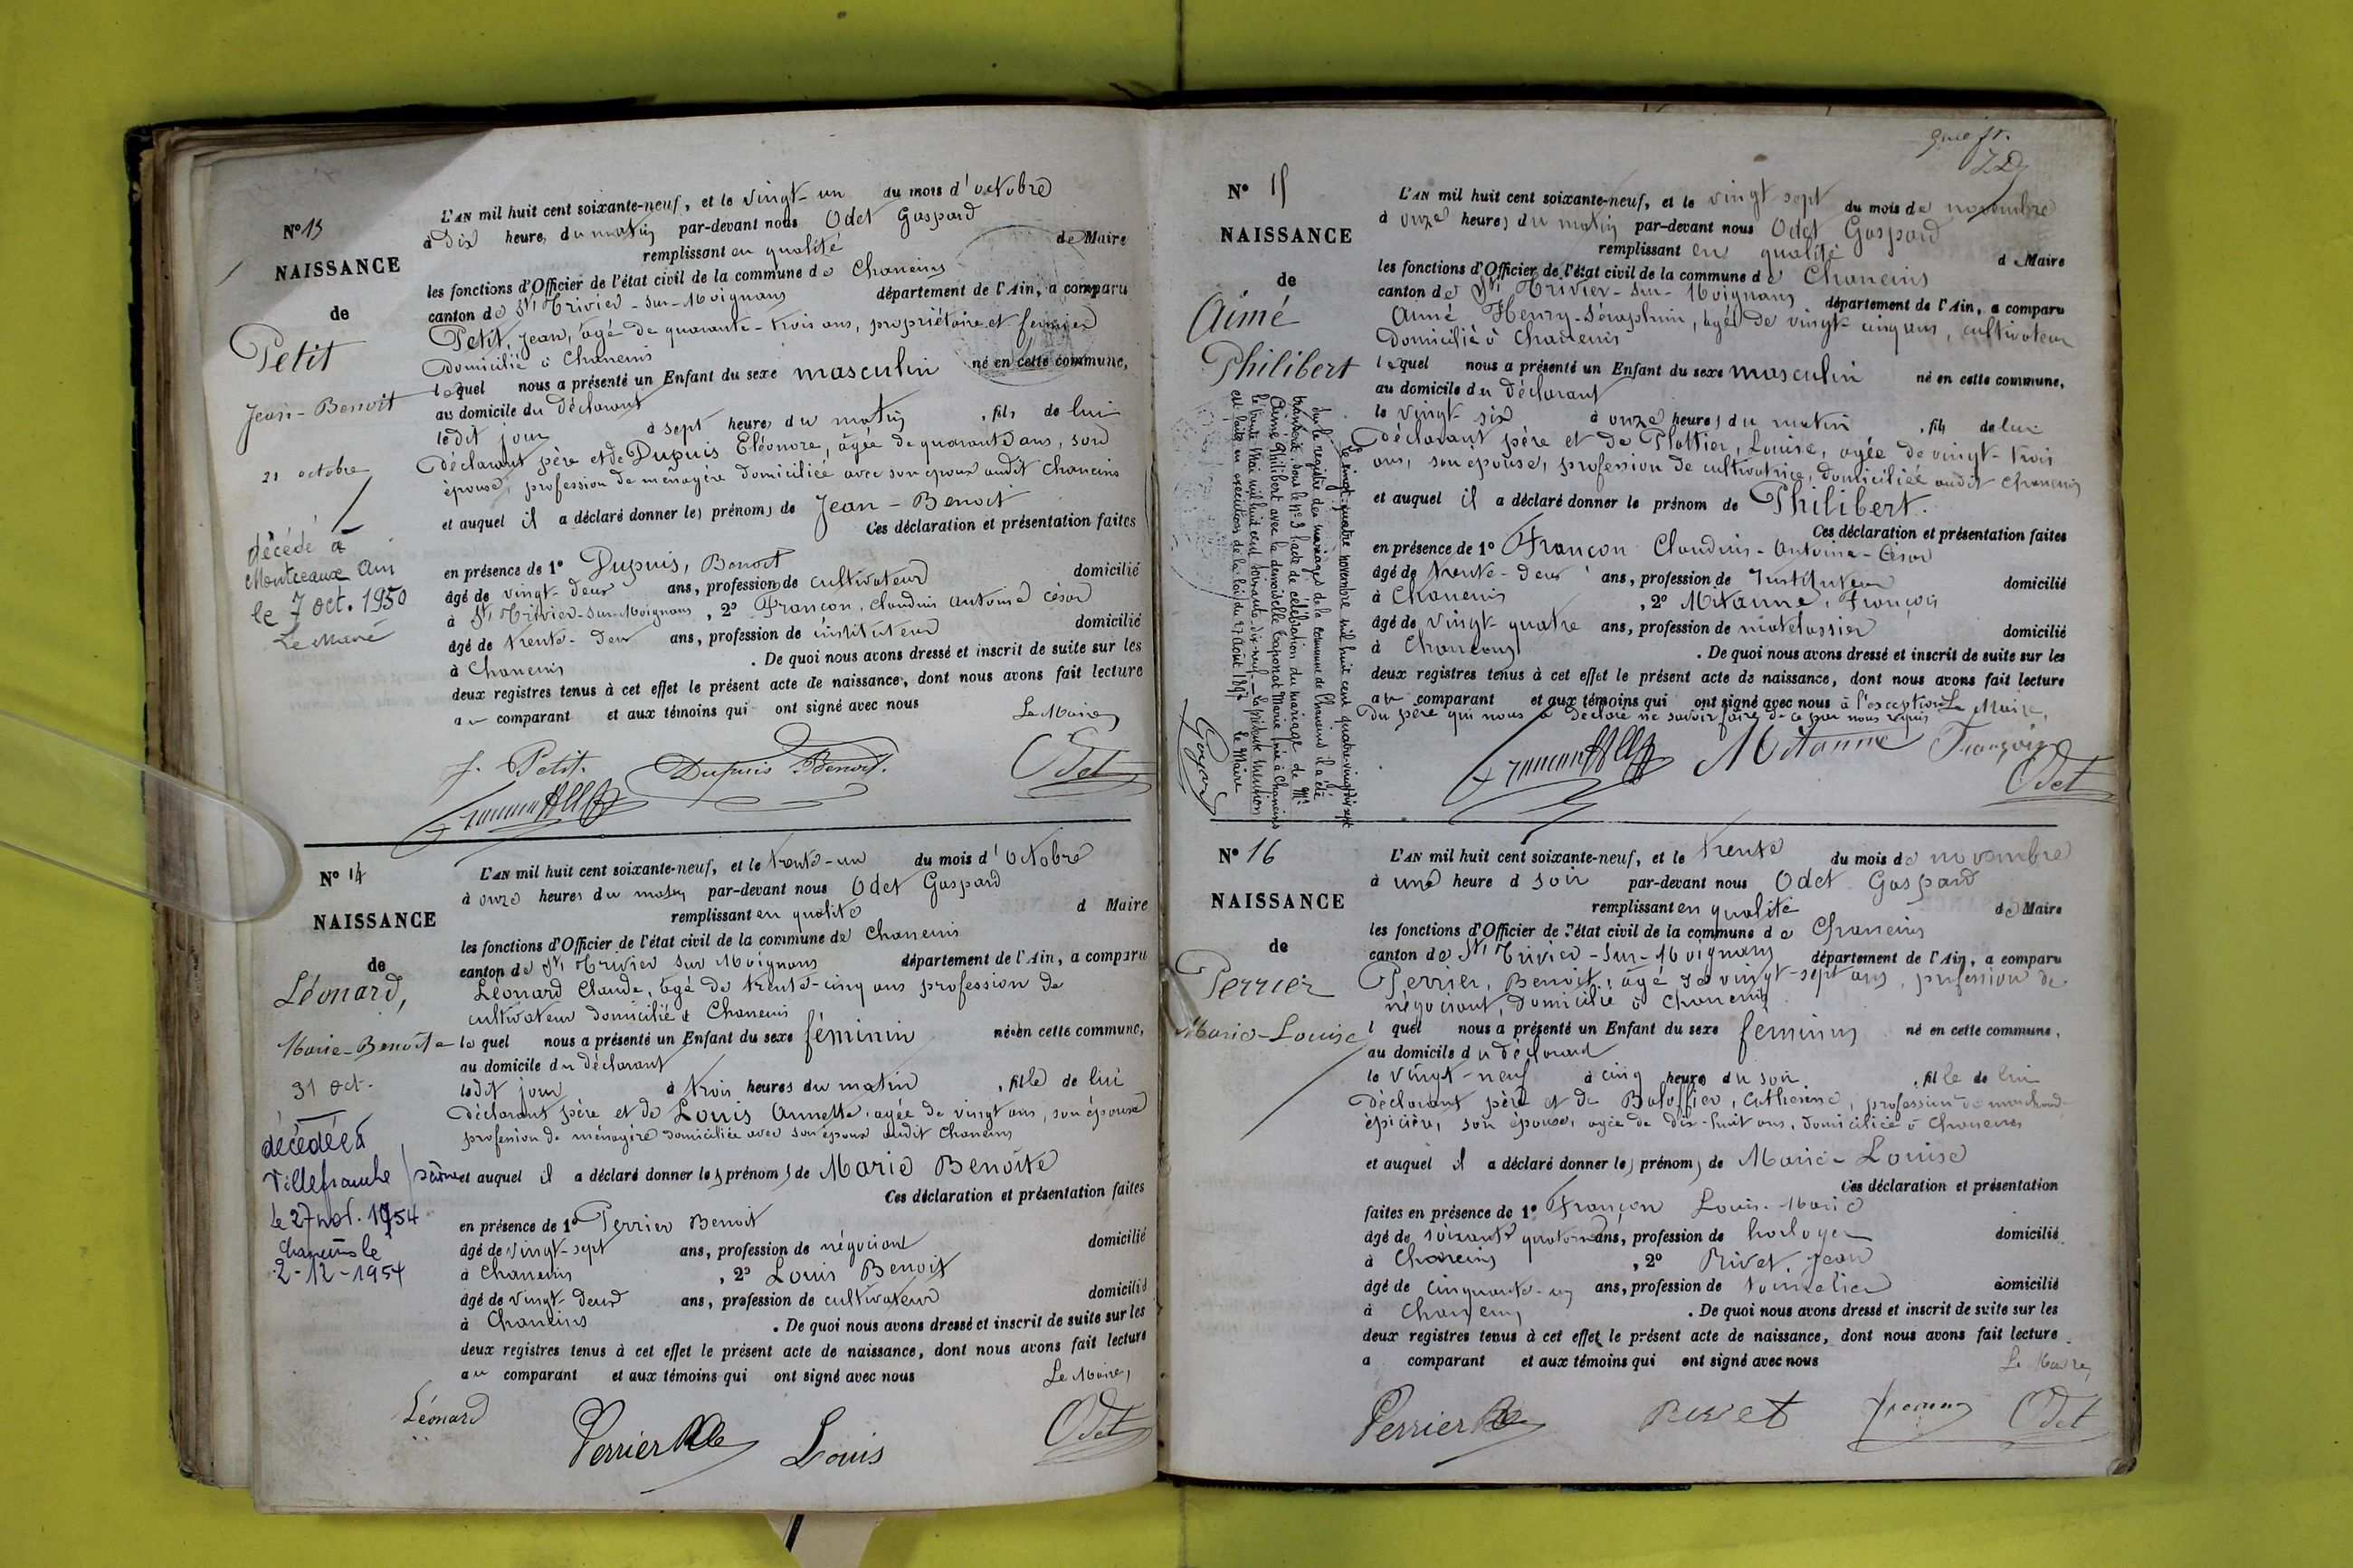 N° 13
NAISSANCE
de
Petit
Jean-Benoit
21 octobre
décédé à
Montceaux Ain
le 7 oct. 1950
Le Maire
L'AN mil huit cent soixante-neuf, et le vingt-un du mois d'octobre
à Dix heures du matin par-devant nous Odet Gaspard
remplissant en qualité de Maire
les fonctions d'Officier de l'état civil de la commune de Chaneins
canton de St Trivier-sur-Moignans département de l'Ain, a comparu
Petit, Jean, âgé de quarante-trois ans, propriétaire et fermier
Domicilié à Chaneins
lequel nous a présenté un Enfant du sexe masculin né en cette commune,
au domicile du Déclarant
ledit jour à sept heures du matin, fils de lui
déclarant père et de Dupuis Eléonore, âgée de quarante ans, son
épouse, profession de ménagère domiciliée avec son époux audit Chaneins
et auquel il a déclaré donner les prénoms de Jean-Benoit
Ces déclaration et présentation faites
en présence de 1° Dupuis, Benoit
âgé de vingt-deux ans, profession de cultivateur domicilié
à St Trivier-sur-Moignans, 2° Françon, Claudius Antoine César
âgé de trente-deux ans, profession de instituteur domicilié
à Chaneins. De quoi nous avons dressé et inscrit de suite sur les
deux registres tenus à cet effet le présent acte de naissance, dont nous avons fait lecture
au comparant et aux témoins qui ont signé avec nous Le Maire,
J. Petit. Dupuis Benoit. Odet
N° 14
NAISSANCE
de
Léonard,
Marie-Benoîte
31 oct.
décédée à
Villefranche / Saône
le 27 nov. 1954
Chaneins le
2-12-1954
L'AN mil huit cent soixante-neuf, et le trente-un du mois d'octobre
à onze heures du matin par-devant nous Odet Gaspard
remplissant en qualité d Maire
les fonctions d'Officier de l'état civil de la commune de Chaneins
canton de St Trivier sur Moignans département de l'Ain, a comparu
Léonard Claude, âgé de trente-cinq ans profession de
cultivateur domicilié à Chaneins
lequel nous a présenté un Enfant du sexe féminin né en cette commune,
au domicile du déclarant
ledit jour à trois heures du matin, fille de lui
déclarant père et de Louis Annette, agée de vingt ans, son épouse
profession de ménagère domiciliée avec son époux audit Chaneins
et auquel il a déclaré donner les prénoms de Marie Benoîte
Ces déclaration et présentation faites
en présence de 1° Perrier Benoit
âgé de vingt-sept ans, profession de négociant domicilié
à Chaneins, 2° Louis Benoit
âgé de vingt-deux ans, profession de cultivateur domicilié
à Chaneins. De quoi nous avons dressé et inscrit de suite sur les
deux registres tenus à cet effet le présent acte de naissance, dont nous avons fait lecture
au comparant et aux témoins qui ont signé avec nous Le Maire,
Léonard Perrier Louis Odet
N° 15
NAISSANCE
de
Aimé
Philibert
Le vingt-quatre novembre mil huit cent quatre-vingt-dix-sept
sur le registre des mariages de la commune de Chaneins il a été
transcrit, sous le N° 3 l'acte de célébration du mariage de Mr
Aimé Philibert avec la demoiselle Marie née à Chaneins
le mil huit cent soixante-dix-neuf. La présente mention
est faite en exécution de la loi du 17 Août 1897 Le Maire
L'AN mil huit cent soixante-neuf, et le vingt sept du mois de novembre
à onze heures du matin par-devant nous Odet Gaspard
remplissant en qualité d Maire
les fonctions d'Officier de l'état civil de la commune de Chaneins
canton de St Trivier-sur-Moignans département de l'Ain, a comparu
Aimé Henry-Séraphin, âgé de vingt-cinq ans, cultivateur
Domicilié à Chaneins
lequel nous a présenté un Enfant du sexe masculin né en cette commune,
au domicile du déclarant
le vingt-six à onze heures du matin, fils de lui
déclarant père et de Plattier, Louise, agée de vingt-trois
ans, son épouse, profession de cultivatrice, domiciliée audit Chaneins
et auquel il a déclaré donner le prénom de Philibert.
Ces déclaration et présentation faites
en présence de 1° Françon Claudius-Antoine-César
âgé de trente-deux ans, profession de Instituteur domicilié
à Chaneins, 2° Mitanne, François
âgé de vingt-quatre ans, profession de matelassier domicilié
à Chaneins. De quoi nous avons dressé et inscrit de suite sur les
deux registres tenus à cet effet le présent acte de naissance, dont nous avons fait lecture
au comparant et aux témoins qui ont signé avec nous à l'exception Le Maire,
du père qui nous a déclaré ne savoir faire de ce par nous requis
Mitanne François Odet
N° 16
NAISSANCE
de
Perrier
Marie-Louise
L'AN mil huit cent soixante-neuf, et le trente du mois de novembre
à une heure d soir par-devant nous Odet Gaspard
remplissant en qualité de Maire
les fonctions d'Officier de l'état civil de la commune de Chaneins
canton de St Trivier-sur-Moignans département de l'Ain, a comparu
Perrier, Benoit, âgé de vingt-sept ans, profession de
négociant, domicilié à Chaneins
l quel nous a présenté un Enfant du sexe féminin né en cette commune,
au domicile du déclarant
le vingt-neuf à cinq heures du soir, fille de lui
déclarant père et de Catherine, profession de marchande
épicière, son épouse, agée de dix-huit ans, domiciliée à Chaneins
et auquel il a déclaré donner les prénoms de Marie-Louise
Ces déclaration et présentation
faites en présence de 1° Françon Louis-Marie
âgé de soixante quatorze ans, profession de horloger domicilié
à Chaneins, 2° Rivet, Jean
âgé de cinquante-un ans, profession de tonnelier domicilié
à Chaneins. De quoi nous avons dressé et inscrit de suite sur les
deux registres tenus à cet effet le présent acte de naissance, dont nous avons fait lecture
a comparant et aux témoins qui ont signé avec nous Le Maire,
Perrier Rivet Françon Odet